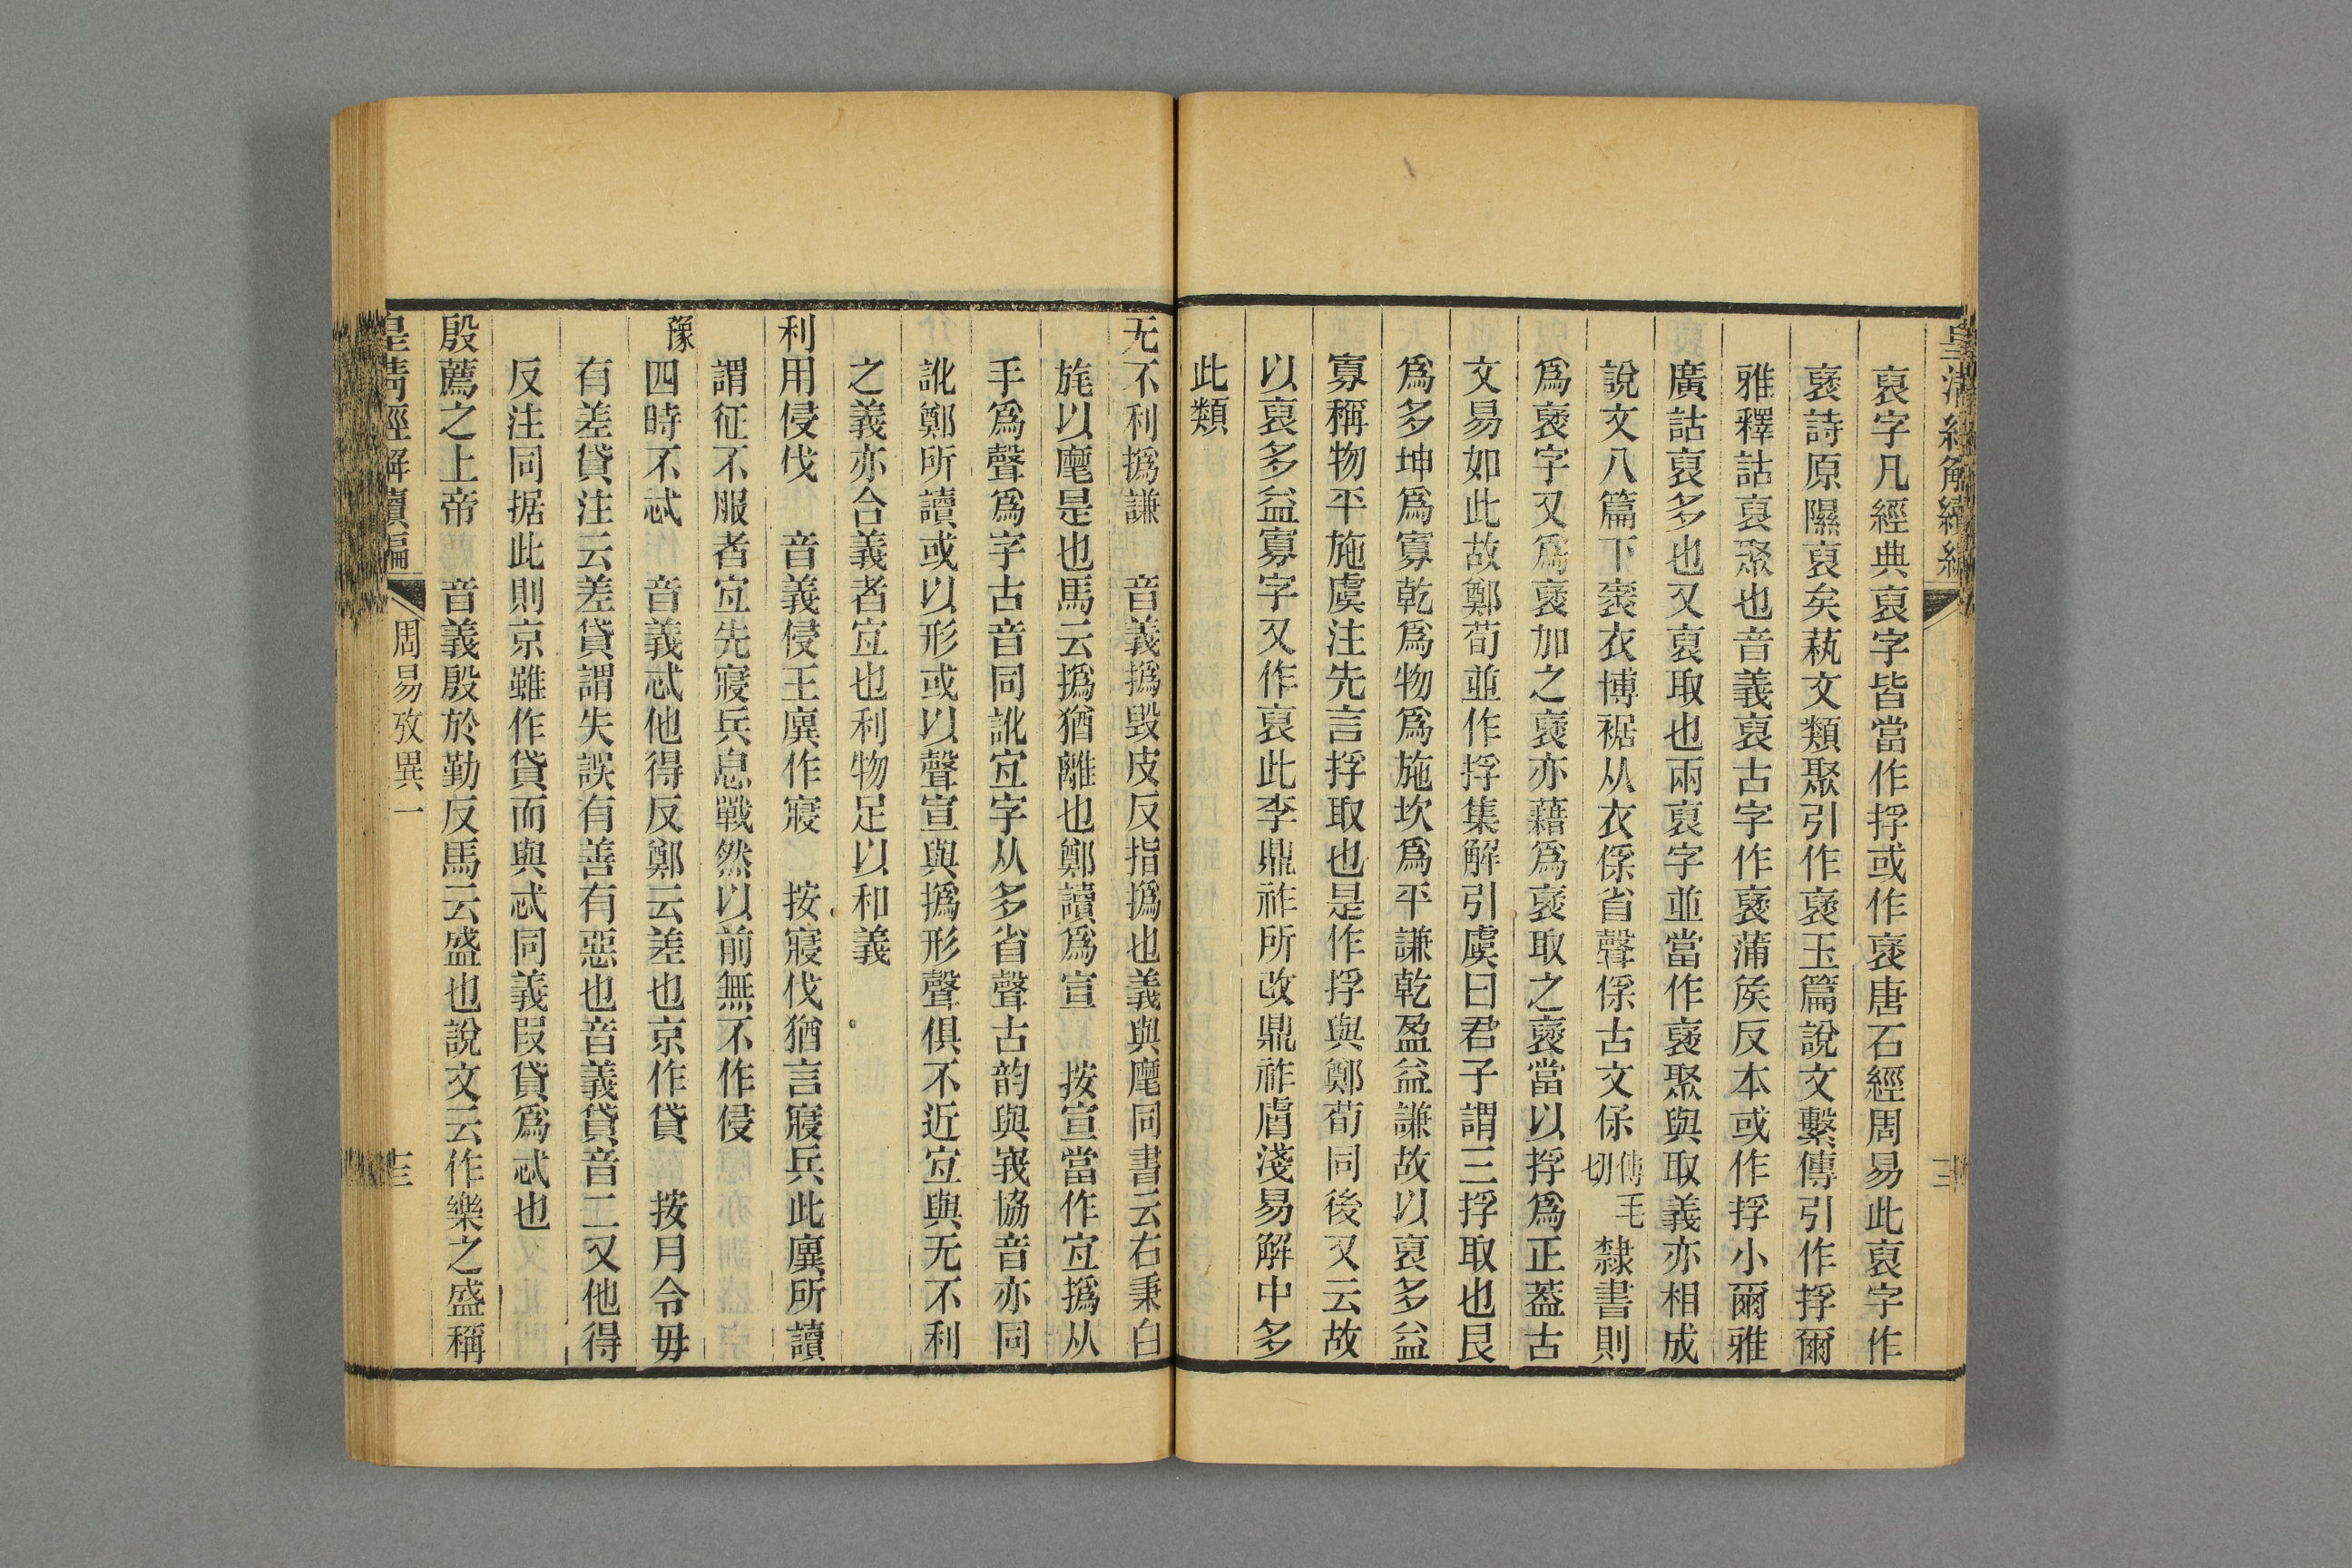 皇清經解續編
哀字凡經典裒字皆當作捊或作襃唐石經周易此裒字作
襃詩原隰裒矣蓺文類聚引作襃玉篇說文繫傳引作捊爾
雅釋詁裒聚也音義裒古字作襃蒲矦反本或作捊小爾雅
廣詁裒多也又裒取也兩裒字並當作襃聚與取義亦相成
說文八篇下襃衣博裾从衣㑥省聲㑥古文保博毛切隸書則
爲襃字又爲襃加之襃亦藉爲襃取之襃當以捊爲正葢古
文易如此故鄭荀並作捊集解引虞曰君子謂三捊取也艮
爲多坤爲寡乾爲物爲施坎爲平謙乾盈益謙故以裒多益
寡稱物平施虞注先言捊取也是作捊與鄭荀同後又云故
以裒多益寡字又作裒此李鼎祚所改鼎祚膚淺易解中多
此類
无不利撝謙　音義撝毀皮反指撝也義與麾同書云右秉白
旄以麾是也馬云撝猶離也鄭讀爲宣　按宣當作宜撝从
手爲聲爲字古音同訛宜字从多省聲古韵與峩協音亦同
訛鄭所讀或以形或以聲宣與撝形聲俱不近宜與无不利
之義亦合義者宜也利物足以和義
利用侵伐　音義侵王廙作寑　按寑伐猶言寑兵此廙所讀
謂征不服者宜先寑兵息戰然以前無不作侵
豫
四時不忒　音義忒他得反鄭云差也京作貸　按月令毋
有差貸注云差貸謂失誤有善有惡也音義貸音二又他得
反注同据此則京雖作貸而與忒同義叚貸爲忒也
殷薦之上帝　音義殷於勤反馬云盛也說文云作樂之盛稱
皇清經解續編　周易攷異一　十三